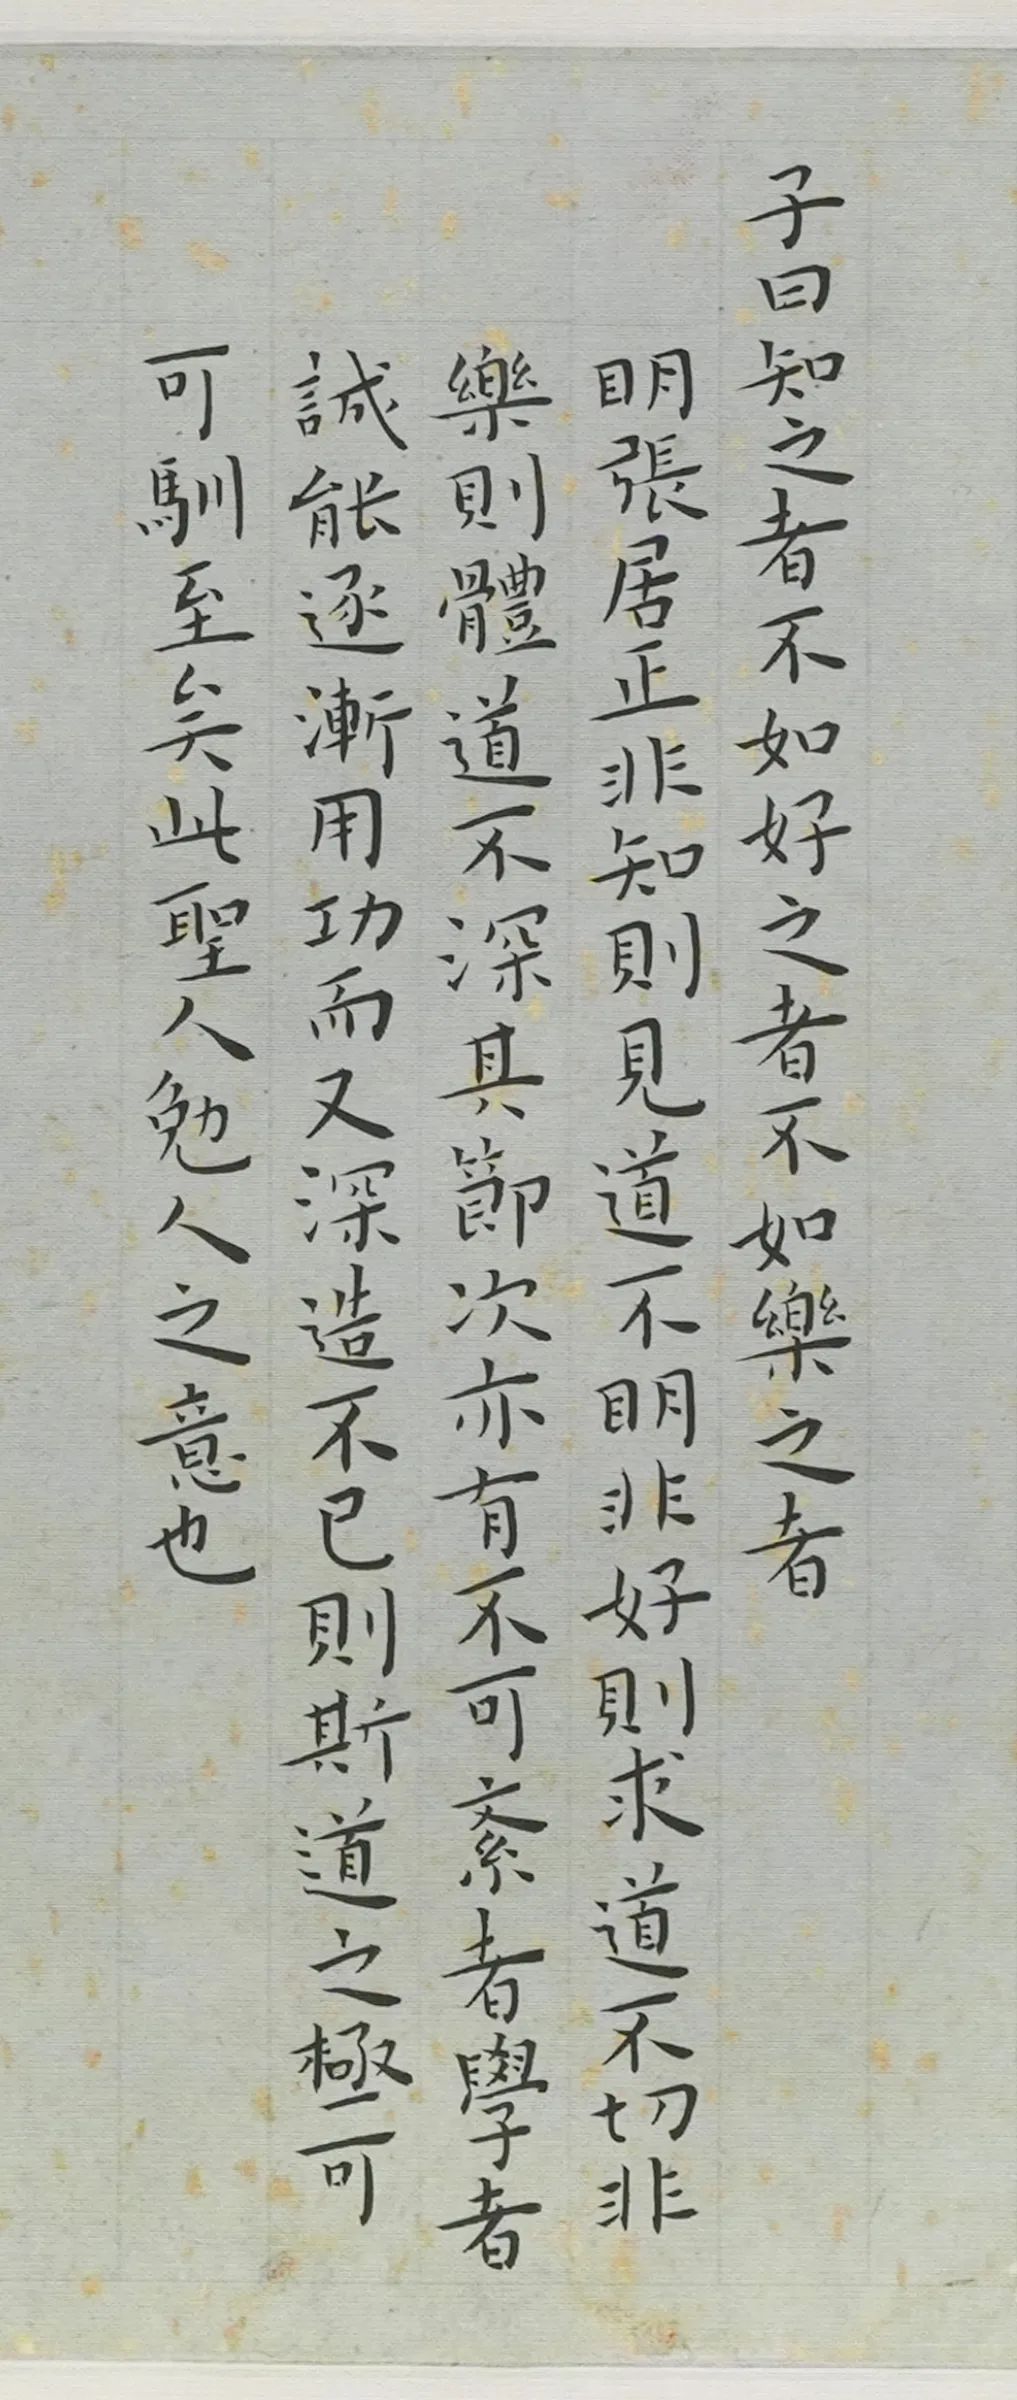 子曰知之者不如好之者不如樂之者
明張居正非知則見道不明非好則求道不切非
樂則體道不深其節次亦有不可紊者學者
誠能逐漸用功而又深造不已則斯道之極可
可馴至矣此聖人勉人之意也